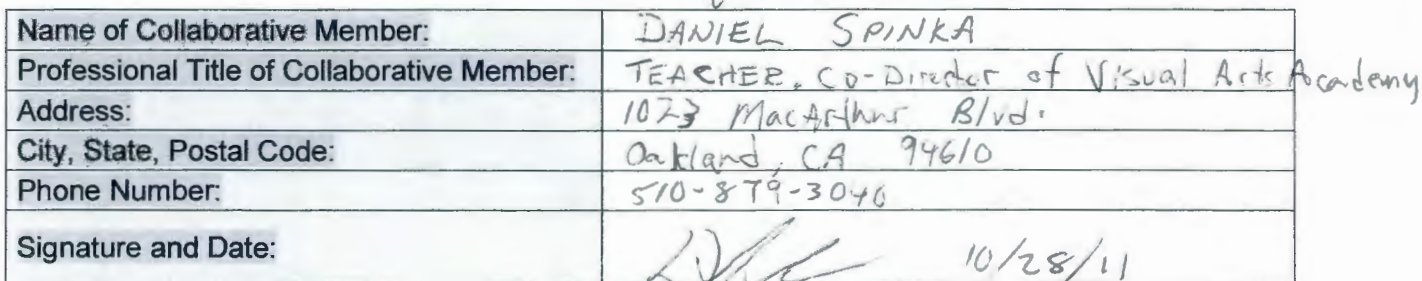 Name of Collaborative Member: DANIEL SPINKA
Professional Title of Collaborative Member: TEACHER, Co-Director of Visual Arts Academy
Address: 1023 MacArthur Blvd.
City, State, Postal Code: Oakland, CA 94610
Phone Number: 510-879-3040
Signature and Date: 10/28/11